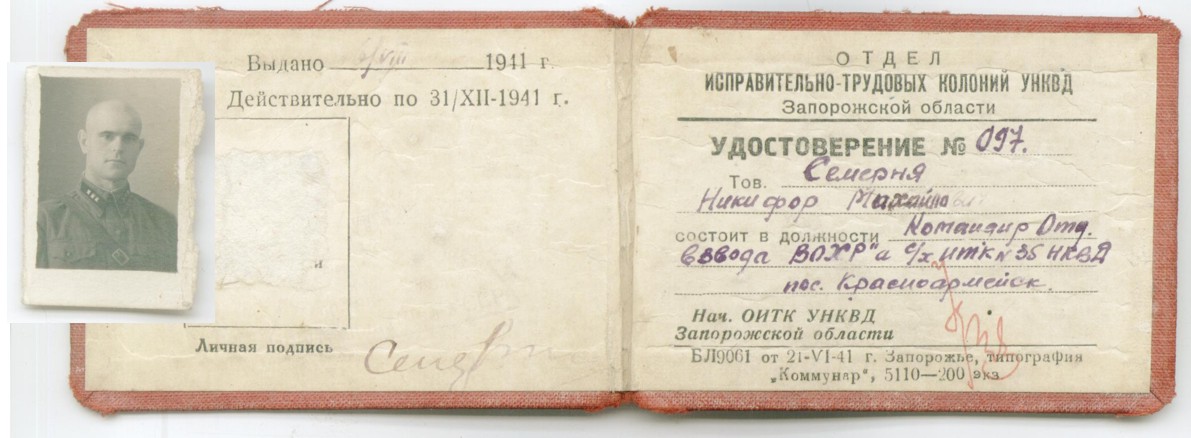 Выдано 1941 г.
Действительно по 31/XII-1941 г.
и
Личная подпись
ОТДЕЛ
ИСПРАВИТЕЛЬНО-ТРУДОВЫХ КОЛОНИЙ УНКВД
Запорожской области
УДОСТОВЕРЕНИЕ № 097.
Тов. Семерня
Никифор Михайлович
состоит в должности Командир Отд.
взвода ВОХР"а с/х ИТК N 35 НКВД
пос. Красноармейск.
Нач. ОИТК УНКВД
Запорожской области
БЛ9061 от 21-VI-41 г. Запорожье, типография
„Коммунар“, 5110—200 экз